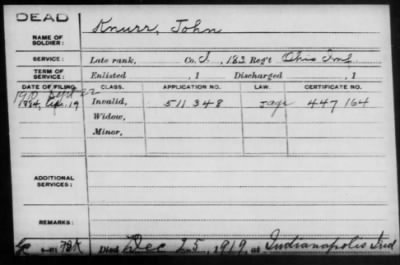 DEAD
NAME OF SOLDIER: Knurr, John
SERVICE: Late rank, Co. I, 183 Reg't Ohio Inf
TERM OF SERVICE: Enlisted , 1 Discharged , 1
DATE OF FILING. CLASS. APPLICATION NO. LAW. CERTIFICATE NO.
1910 Sept 22
1884, 19 Invalid, 511348 447164
Widow,
Minor,
ADDITIONAL SERVICES:
REMARKS:
Died Dec 25, 1919, at Indianapolis Ind